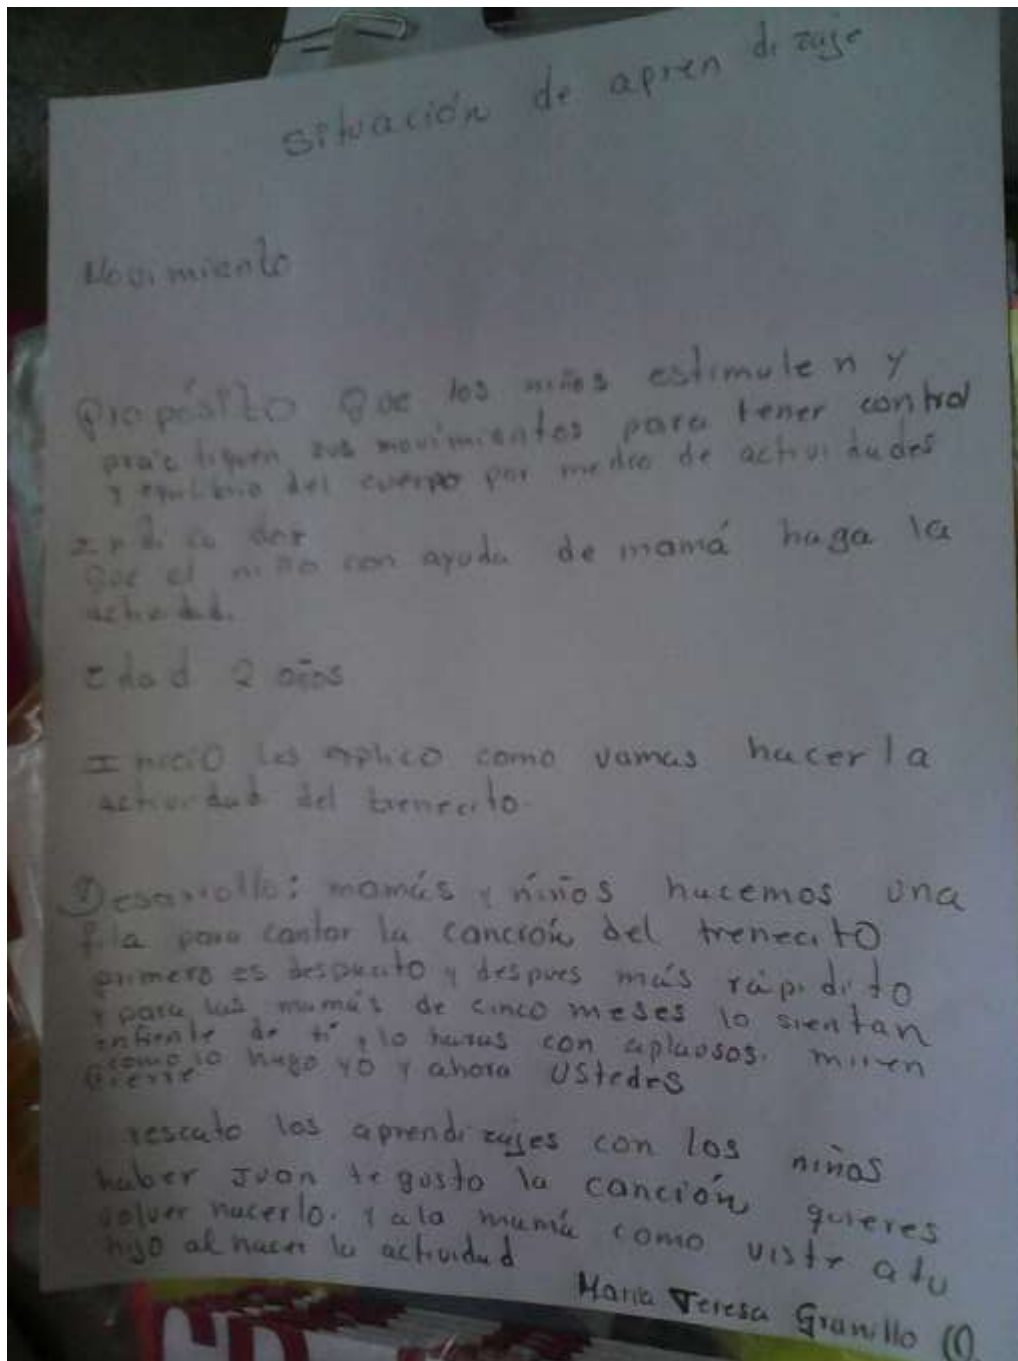 situación de aprendizaje
Movimiento
Propósito Que los niños estimulen y
práctiquen sus movimientos para tener control
y equilibrio del cuerpo por medio de actividades
Indicador
Que el niño con ayuda de mamá haga la
actividad.
Edad 2 años
Inicio Les explico como vamos hacer la
actividad del trenecito.
Desarrollo: mamás y niños hacemos una
fila para cantar la canción del trenecito
primero es despacito y despues más rápidito
y para las mamás de cinco meses lo sientan
enfrente de tí y lo haras con aplausos. miren
como lo hago yo y ahora ustedes
Cierre
rescato los aprendizajes con los niños
haber Juan te gusto la canción quieres
volver hacerlo. y ala mamá como viste atu
hijo al hacer la actividad
Maria Teresa Granillo
CD